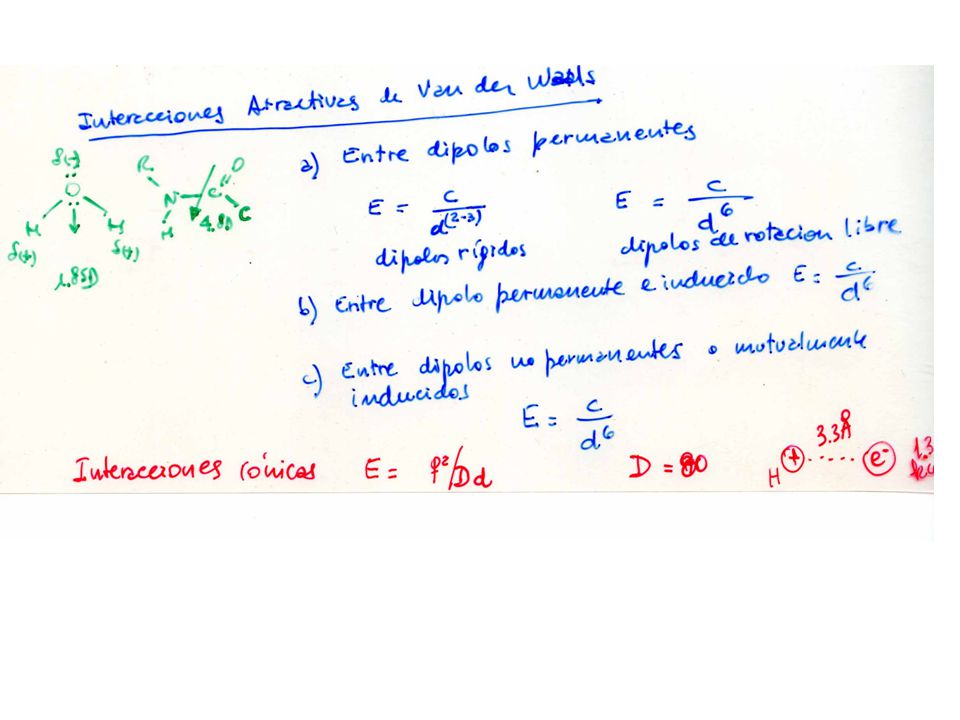 Interacciones Atractivas de Van der Waals
a) Entre dipolos permanentes
E = C/d^(2-3)
dipolos rígidos
E = C/d^6
dipolos de rotacion libre
b) Entre dipolo permanente e inducido E = C/d^6
c) Entre dipolos no permanentes o mutualmente
inducidos
E = C/d^6
δ(-)
O
H H
δ(+) δ(+)
1.85D
R O
N C
H 4.8D C
Interacciones iónicas E = q²/Dd D = 80
3.3Å
H (+) ..... (e-) 1.3